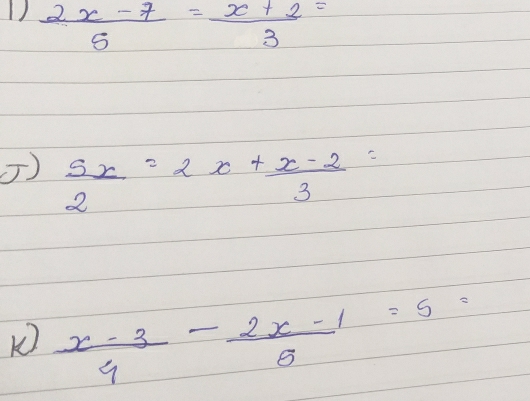 I) 2x - 7 / 5 = x + 2 / 3 =
J) 5x / 2 = 2x + x - 2 / 3 =
K) x - 3 / 4 - 2x - 1 / 5 = 5 =